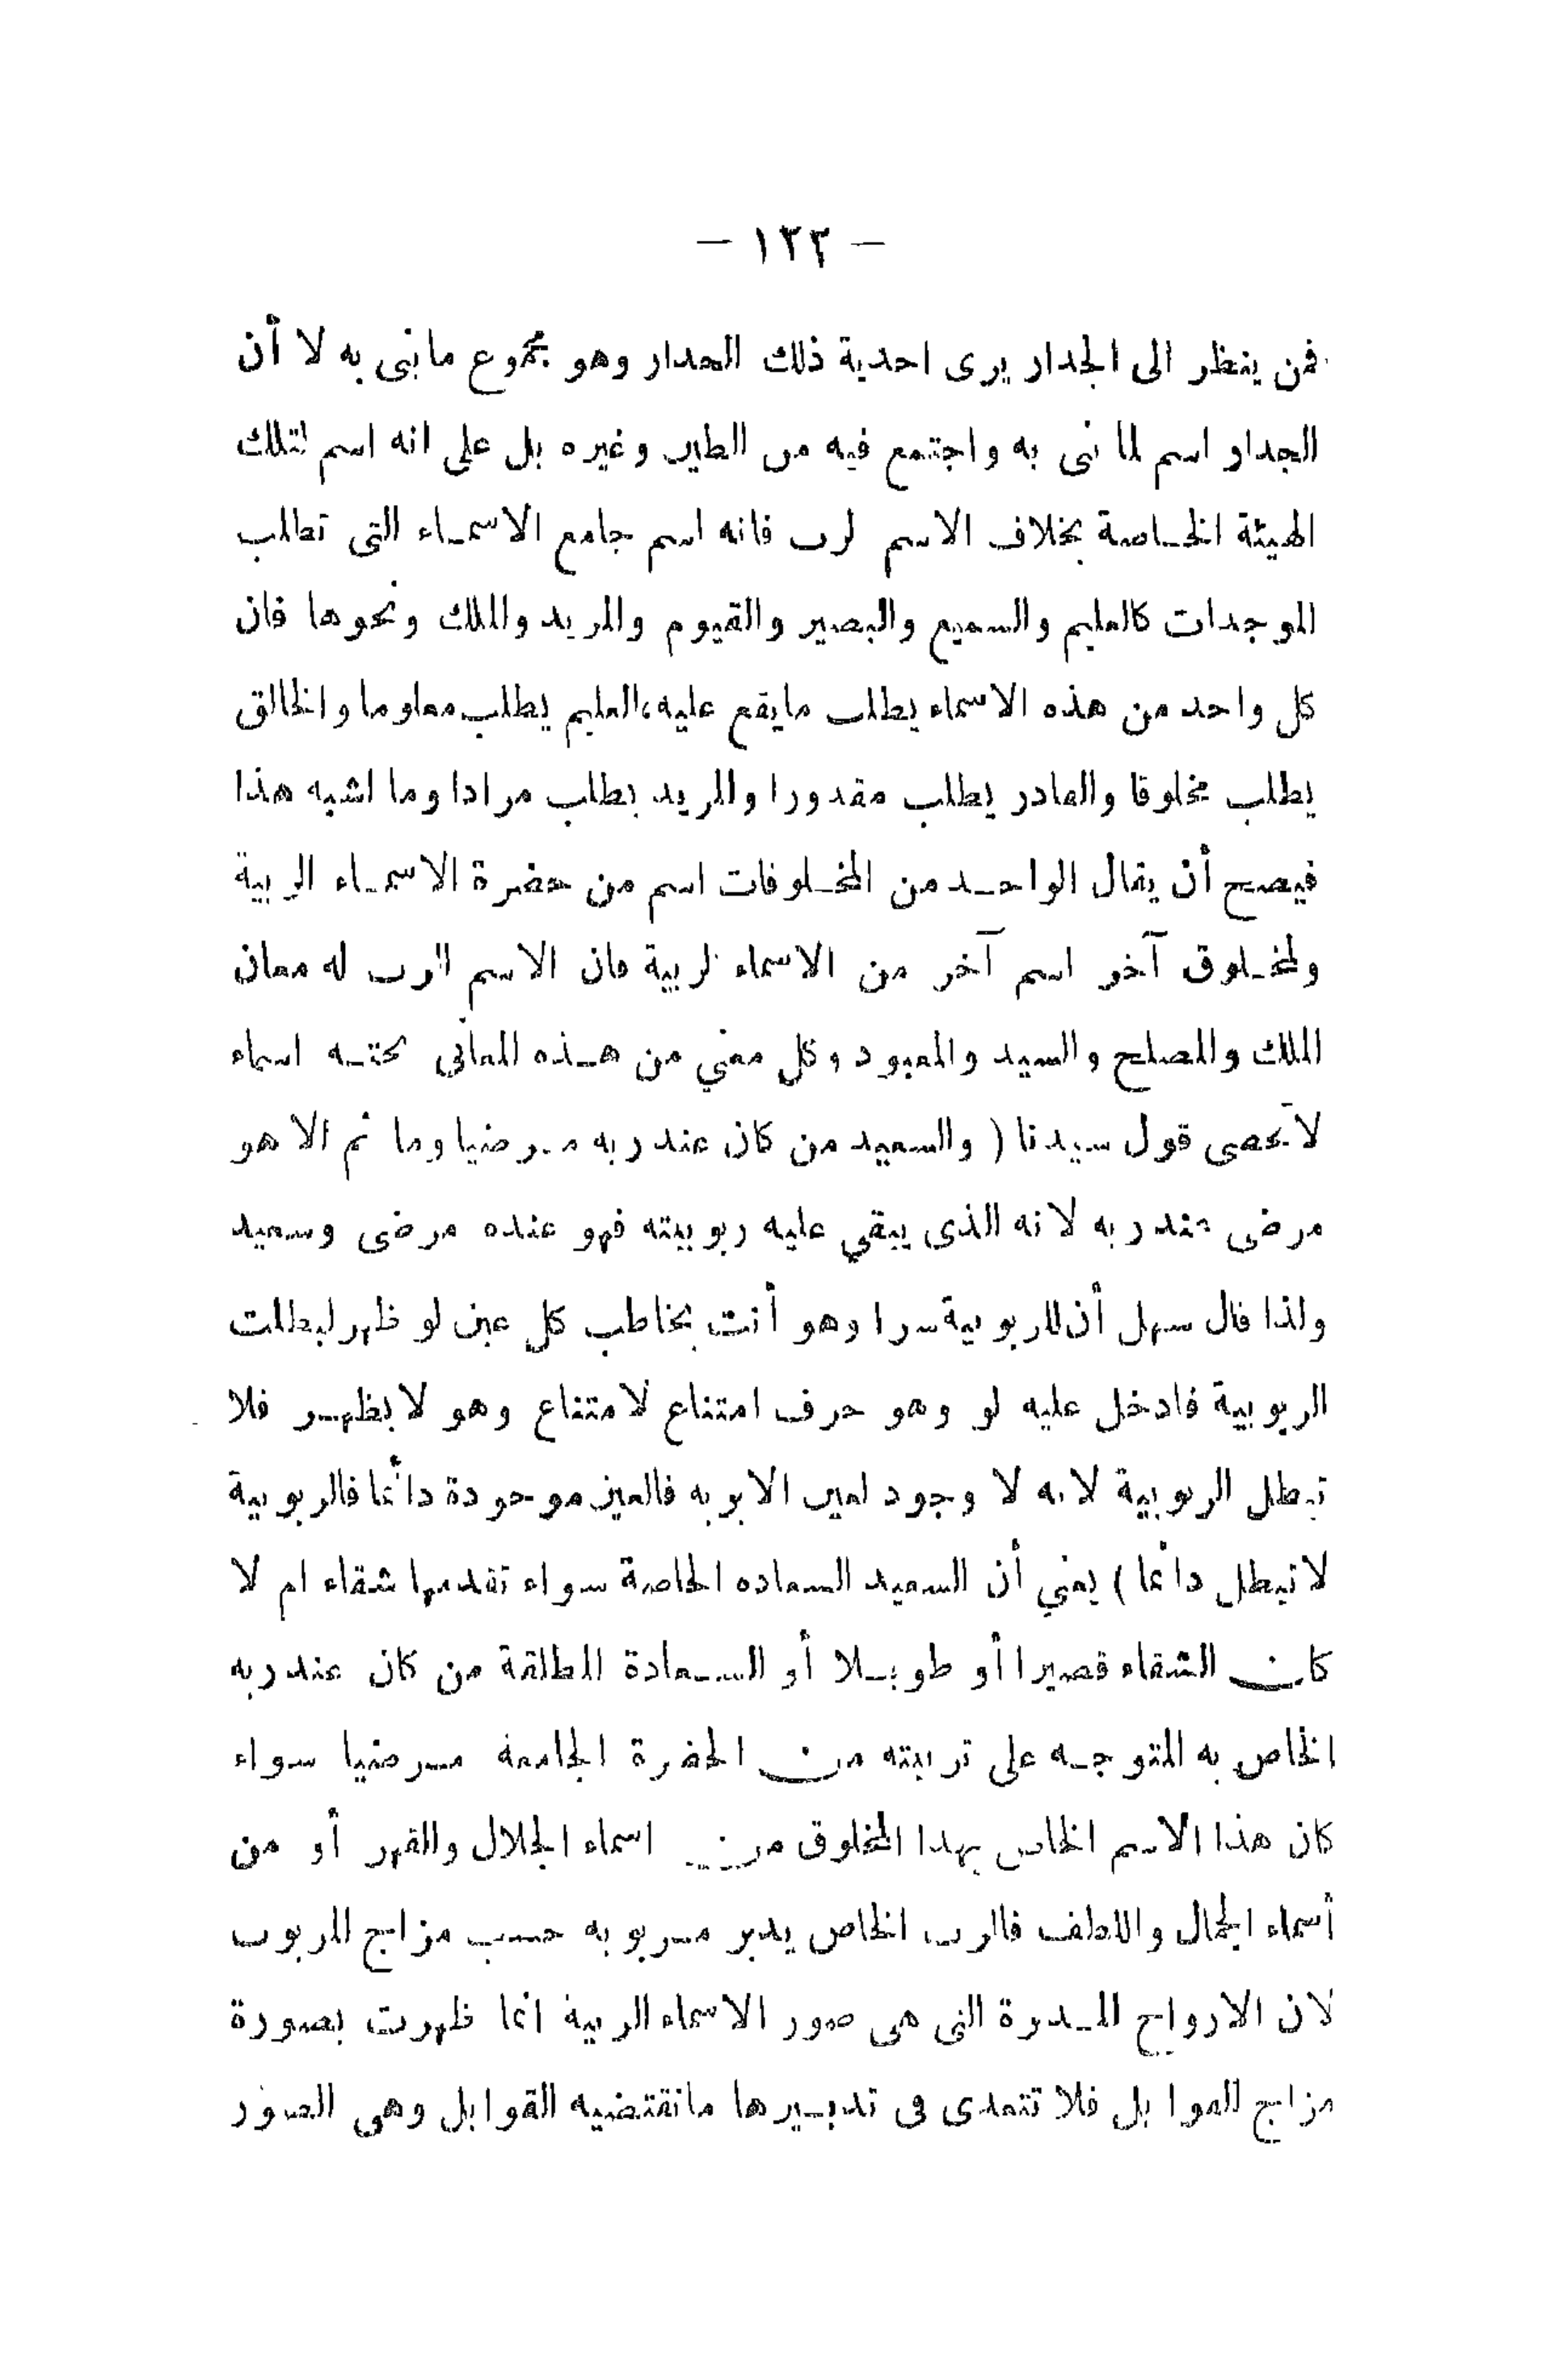 — ١٢٢ —
فمن ينظر الى الجدار يرى احدية ذلك الجدار وهو مجموع مابنى به لا أن
الجدار اسم لما بنى به واجتمع فيه من الطين وغيره بل على انه اسم لتلك
الهيئة الخاصة بخلاف الاسم الرب فانه اسم جامع الاسماء التى تطلب
الموجدات كالعليم والسميع والبصير والقيوم والمريد والملك ونحوها فان
كل واحد من هذه الاسماء يطلب مايقع عليه، العليم يطلب معلوما والخالق
يطلب مخلوقا والقادر يطلب مقدورا والمريد يطلب مرادا وما اشبه هذا
فيصح أن يقال الواحد من المخلوقات اسم من حضرة الاسماء الربية
ولمخلوق آخر اسم آخر من الاسماء الربية فان الاسم الرب له معان
الملك والمصلح والسيد والمعبود وكل معنى من هذه المعانى تحته اسماء
لا تحصى قول سيدنا ( والسعيد من كان عند ربه مرضيا وما ثم الا هو
مرضى عند ربه لانه الذى يبقي عليه ربوبيته فهو عنده مرضى وسعيد
ولذا قال سهل أن للربوبية سرا وهو أنت يخاطب كل عين لو ظهر لبطلت
الربوبية فادخل عليه لو وهو حرف امتناع لامتناع وهو لا يظهر فلا
تبطل الربوبية لانه لا وجود لعين الا بربه فالعين موجودة دائما فالربوبية
لا تبطل دائما ) يعني أن السعيد السعاده الخاصة سواء تقدمها شقاء ام لا
كان الشقاء قصيرا أو طويلا أو السعادة المطلقة من كان عند ربه
الخاص به المتوجه على تربيته من الحضرة الجامعة مرضيا سواء
كان هذا الاسم الخاص بهذا المخلوق من اسماء الجلال والقهر أو من
أسماء الجمال واللطف فالرب الخاص يدبر مربوبه حسب مزاج المربوب
لان الارواح المدبرة التى هى صور الاسماء الربية انما ظهرت بصورة
مزاج القوابل فلا تتعدى فى تدبيرها ماتقتضيه القوابل وهى الصور